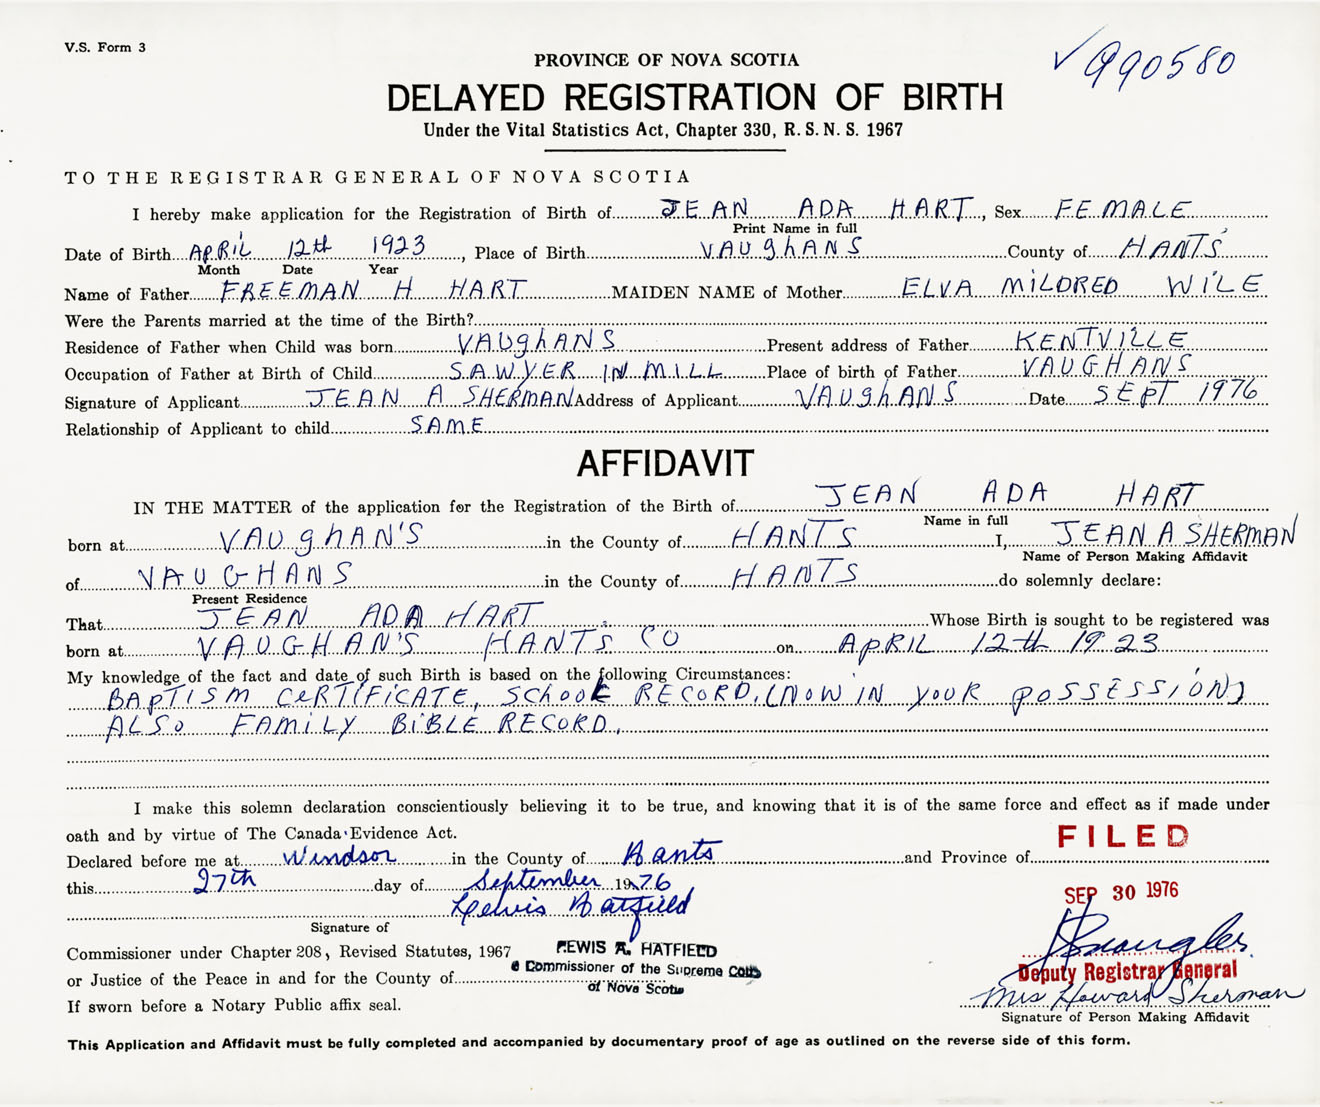 V.S. Form 3
990580
PROVINCE OF NOVA SCOTIA
DELAYED REGISTRATION OF BIRTH
Under the Vital Statistics Act, Chapter 330, R.S.N.S. 1967
TO THE REGISTRAR GENERAL OF NOVA SCOTIA
I hereby make application for the Registration of Birth of JEAN ADA HART, Sex FEMALE
Print Name in full
Date of Birth APRIL 12th 1923, Place of Birth VAUghANS County of HANTS
Month Date Year
Name of Father FREEMAN H HART MAIDEN NAME of Mother ELVA MILDRED WILE
Were the Parents married at the time of the Birth?
Residence of Father when Child was born VAUghANS Present address of Father KENTVILLE
Occupation of Father at Birth of Child SAWYER IN MILL Place of birth of Father VAUGHANS
Signature of Applicant JEAN A SHERMAN Address of Applicant VAUghANS Date SEPT 1976
Relationship of Applicant to child SAME
AFFIDAVIT
IN THE MATTER of the application for the Registration of the Birth of JEAN ADA HART
Name in full
born at VAUghAN'S in the County of HANTS I, JEAN A SHERMAN
Name of Person Making Affidavit
of VAUGHANS in the County of HANTS do solemnly declare:
Present Residence
That JEAN ADA HART Whose Birth is sought to be registered was
born at VAUGHAN'S HANTS CO on APRIL 12th 1923
My knowledge of the fact and date of such Birth is based on the following Circumstances:
BAPTISM CERTIFICATE, SCHOOL RECORD, (NOW IN YOUR POSSESSION)
ALSO FAMILY BIBLE RECORD.
I make this solemn declaration conscientiously believing it to be true, and knowing that it is of the same force and effect as if made under
oath and by virtue of The Canada Evidence Act.
FILED
Declared before me at Windsor in the County of Hants and Province of
this 27th day of September 1976
SEP 30 1976
Lewis Hatfield
Signature of
Commissioner under Chapter 208, Revised Statutes, 1967
LEWIS A. HATFIELD
or Justice of the Peace in and for the County of
a Commissioner of the Supreme Court
of Nova Scotia
Deputy Registrar General
Mrs Howard Sherman
If sworn before a Notary Public affix seal.
Signature of Person Making Affidavit
This Application and Affidavit must be fully completed and accompanied by documentary proof of age as outlined on the reverse side of this form.